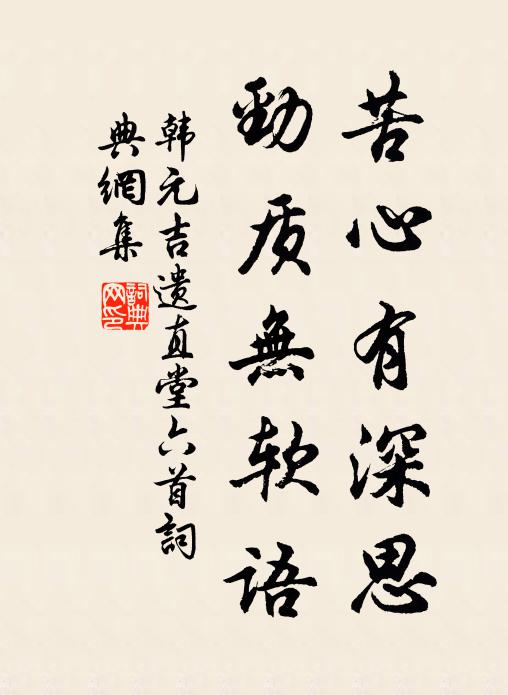 苦心有深思
劲质無软语
韩元吉遗直堂六首詞
典網集
詞典网印